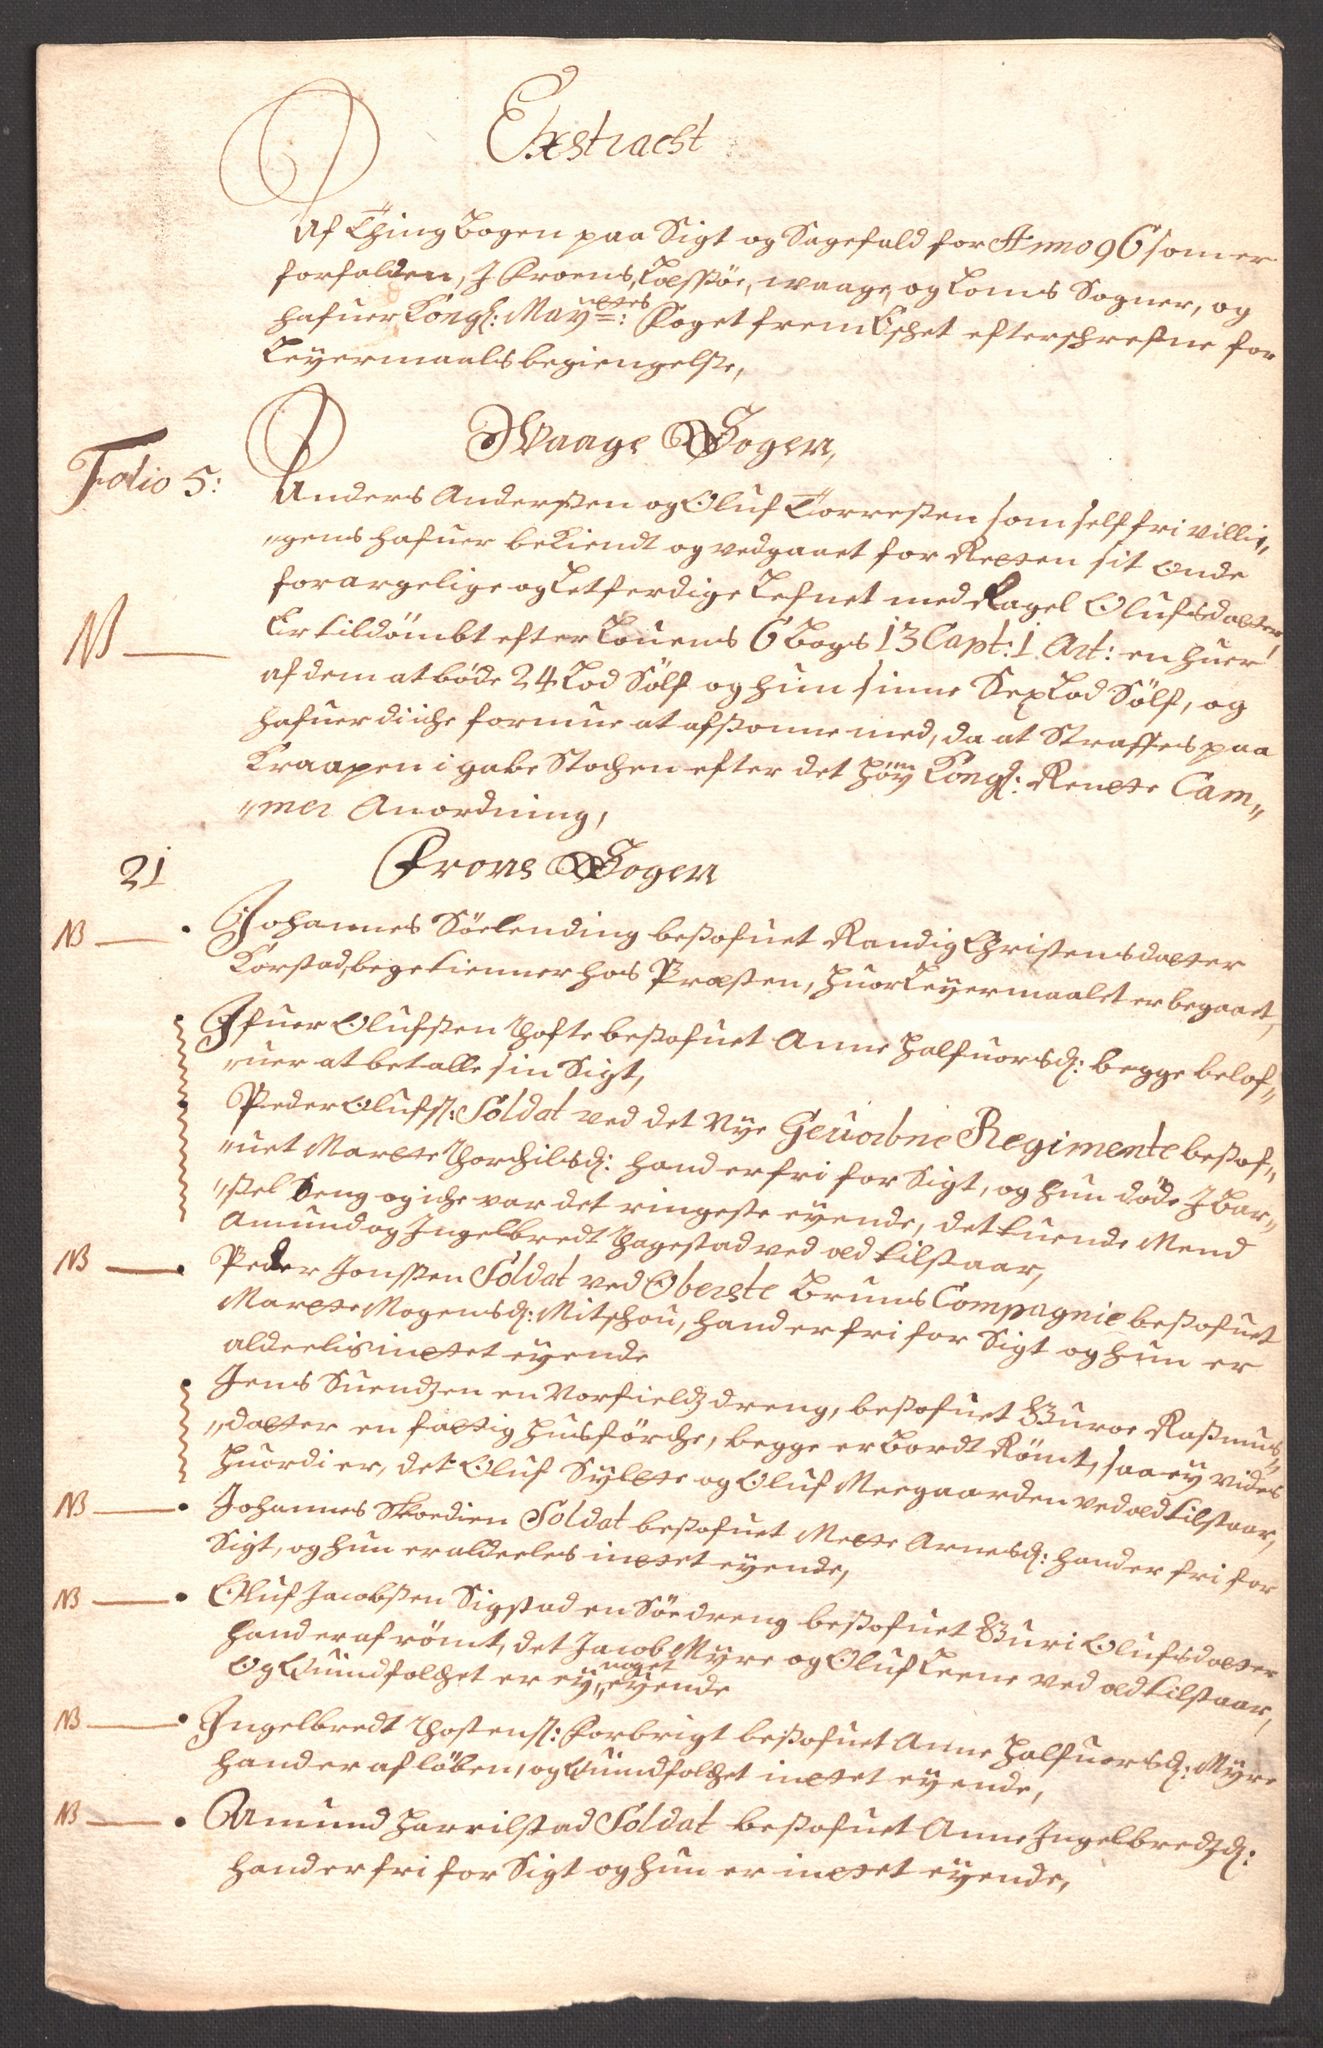 Extract
Af Thing Bogen paa Sigt og Sagefald for Anno 96 som er
forfalden, J Froens, Læssøe, Waage, og Loms Sogner, og
hafuer Kongl: May: ttes Foget frem Eschet efterschrefne for
Leyermaals begiengelse,
Waage Sogen,
Folio 5:
Anders Anderssen og Oluf Torressen som self fri villi„
„gens hafuer bekiendt og vedgaaet for Retten sit onde
forargelige og Letferdige Lefnet med Ragel Olufsdatter,
NB
Er tildømbt efter Louens 6 Bogs 13 Capt: 1 Art: en huer
af dem at bøde 24 Lod Sølf og hun sinne Sex Lod Sølf, og
hafuer di iche formue at afsonne med, da at Straffes paa
Kraapen i gabe Stochen efter det høy Kongl: Rente Cam„
„mer Anordning,
21
Frons Sogen
NB Johannes Søelending besofuet Randig Christensdatter
Korstad, bege tienner hos Præsten, huor Leyermaalet er begaaet,
Jfuer Olufssen Tofte besofuet Anne Halfuorsd: begge belof„
„uer at betalle sin Sigt,
Peder Olufss: Soldat ved det Nye Geuorbne Regimente besof„
„uet Marete Thorchilsd: hand er fri for Sigt, og hun døde J Bar„
„sel Seng og iche var det ringeste eyende, det tuende Mend
Amund og Jngelbredt Hagestad ved æd tilstaar,
NB Peder Jonssen Soldat ved Oberste Bruns Compagnie besofuet
Marete Mogensd: Mitschou, hand er fri for Sigt og hun er
aldeelis intet eyende
Jens Suendzen en Norfieldz dreng, besofuet Guroe Rasmus„
„datter en fattig husførche, begge er bordt Rømt, saa ey vides
huor di er, det Oluf Sylte og Oluf Meegaarden ved æd tilstaar,
NB Johannes Skoedien Soldat besofuet Mette Arnesd: hand er fri for
Sigt, og hun er aldeeles intet eyende,
NB Oluf Jacobssen Sigstad en Søedreng besofuet Guri Olufsdatter
hand er af rømt, det Jacob Myre og Oluf Leene ved æd tilstaar,
Og Quindfolchet er ey noget eyende
NB Jngelbredt Thostenss: Forbrigt besofuet Anne Halfuorsd: Myre
hand er af løben, og Quindfolchet intet eyende,
NB Amund Harrilstad Soldat besofuet Anne Jngelbredzd:
hand er fri for Sigt og hun er intet eyende,